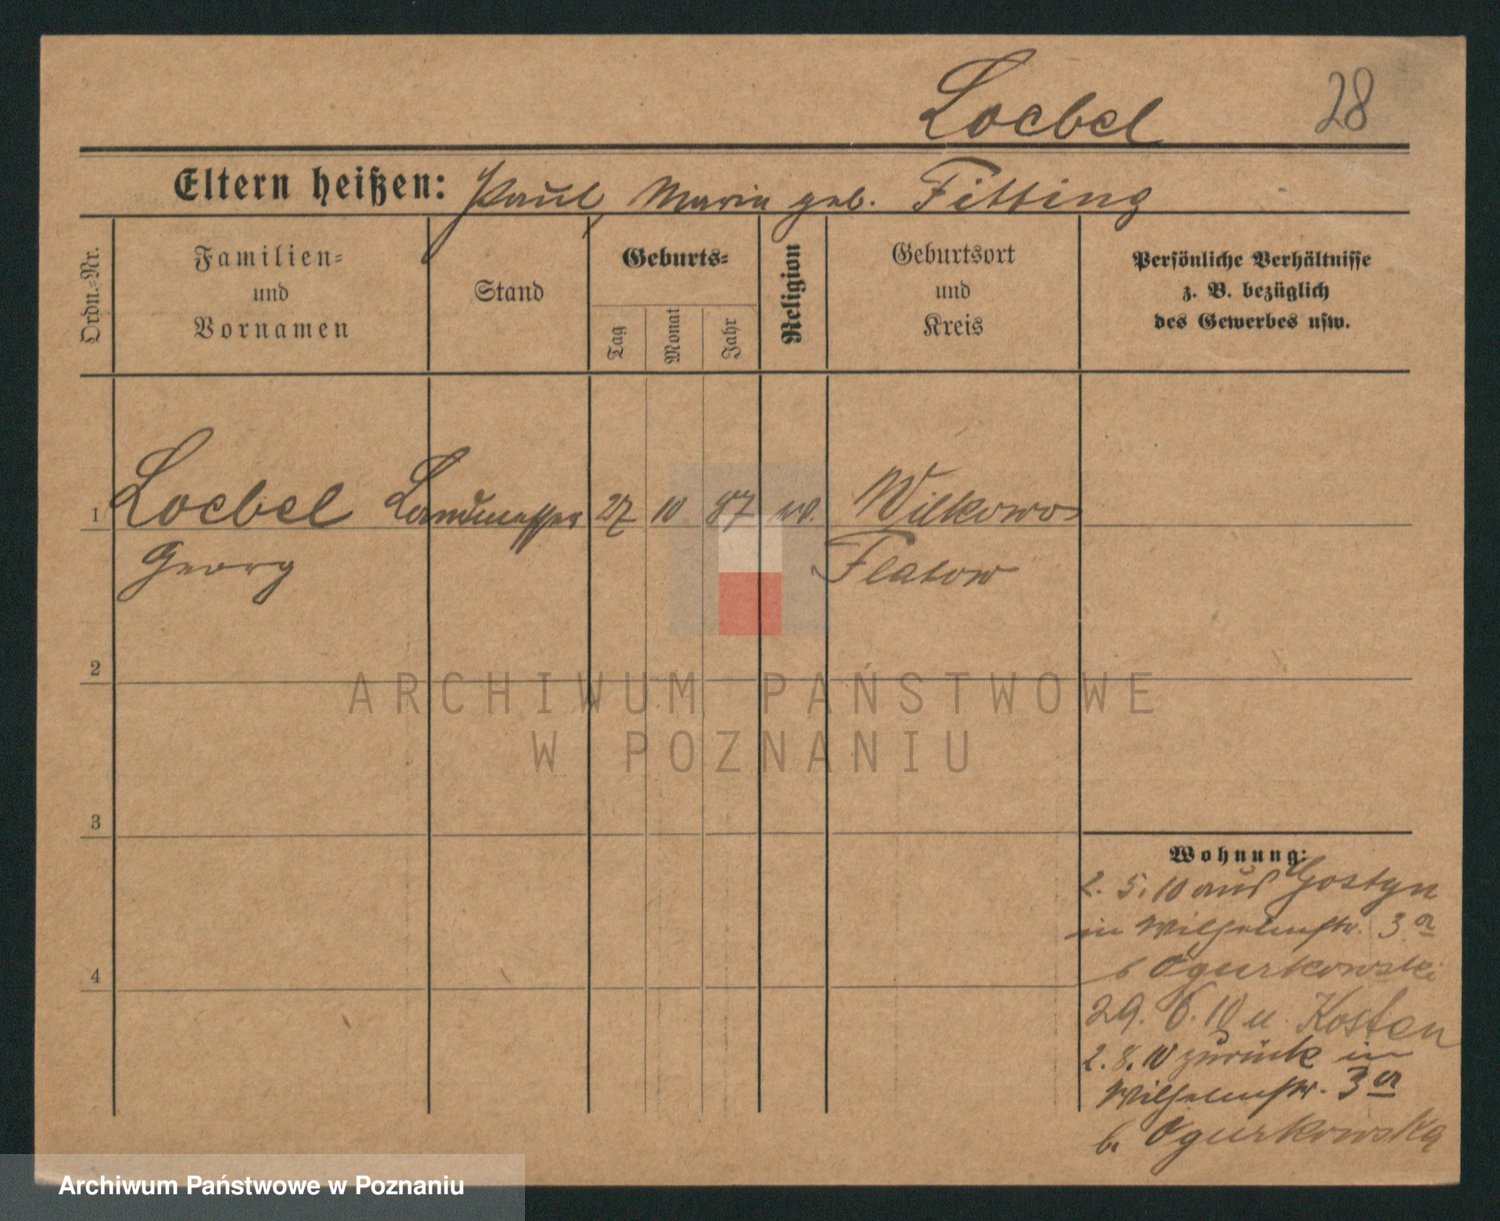 Loebel 28
Eltern heißen: Paul, Maria geb. Fitting
Ordn.-Nr.
Familien-
und
Vornamen
Stand
Geburts-
Tag
Monat
Jahr
Religion
Geburtsort
und
Kreis
Persönliche Verhältnisse
z. B. bezüglich
des Gewerbes usw.
1 Loebel Landmesser 27 10 87 ev. Wilkowo
Georg Flatow
2
3
4
Wohnung:
2. 5. 10 aus Gostyn
in Wilhelmstr. 3a
b Ogurkowski
29. 6. 10 n. Kosten
2. 8. 10 zurück in
Wilhelmstr. 3a
b. Ogurkowska
ARCHIWUM PAŃSTWOWE
W POZNANIU
Archiwum Państwowe w Poznaniu